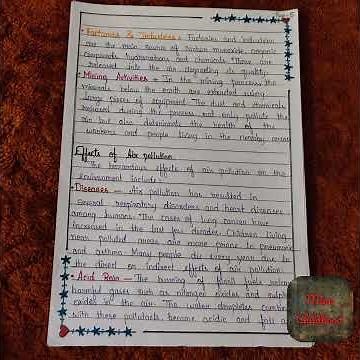 • Factories & Industries :- Factories and industries
are the main source of carbon monoxide, organic
compounds, hydrocarbons and chemicals. These are
released into the air, degrading its quality.
• Mining Activities - In the mining process, the
minerals below the earth are extracted using
large pieces of equipment. The dust and chemicals
released during the process not only pollute the
air but also deteriorate the health of the
workers and people living in the nearby areas
Effects of Air pollution
The hazardous effects of air pollution on the
environment include :
• Diseases - Air pollution has resulted in
several respiratory disorders and heart diseases
among humans. The cases of lung cancer have
increased in the last few decades. Children living
near polluted areas are more prone to pneumonia
and asthma. Many people die every year due to
the direct or indirect effects of air pollution.
• Acid Rain - The burning of fossil fuels releases
harmful gases such as nitrogen oxides and sulphur
oxides in the air. The water droplets combine
with these pollutants, become acidic and fall as